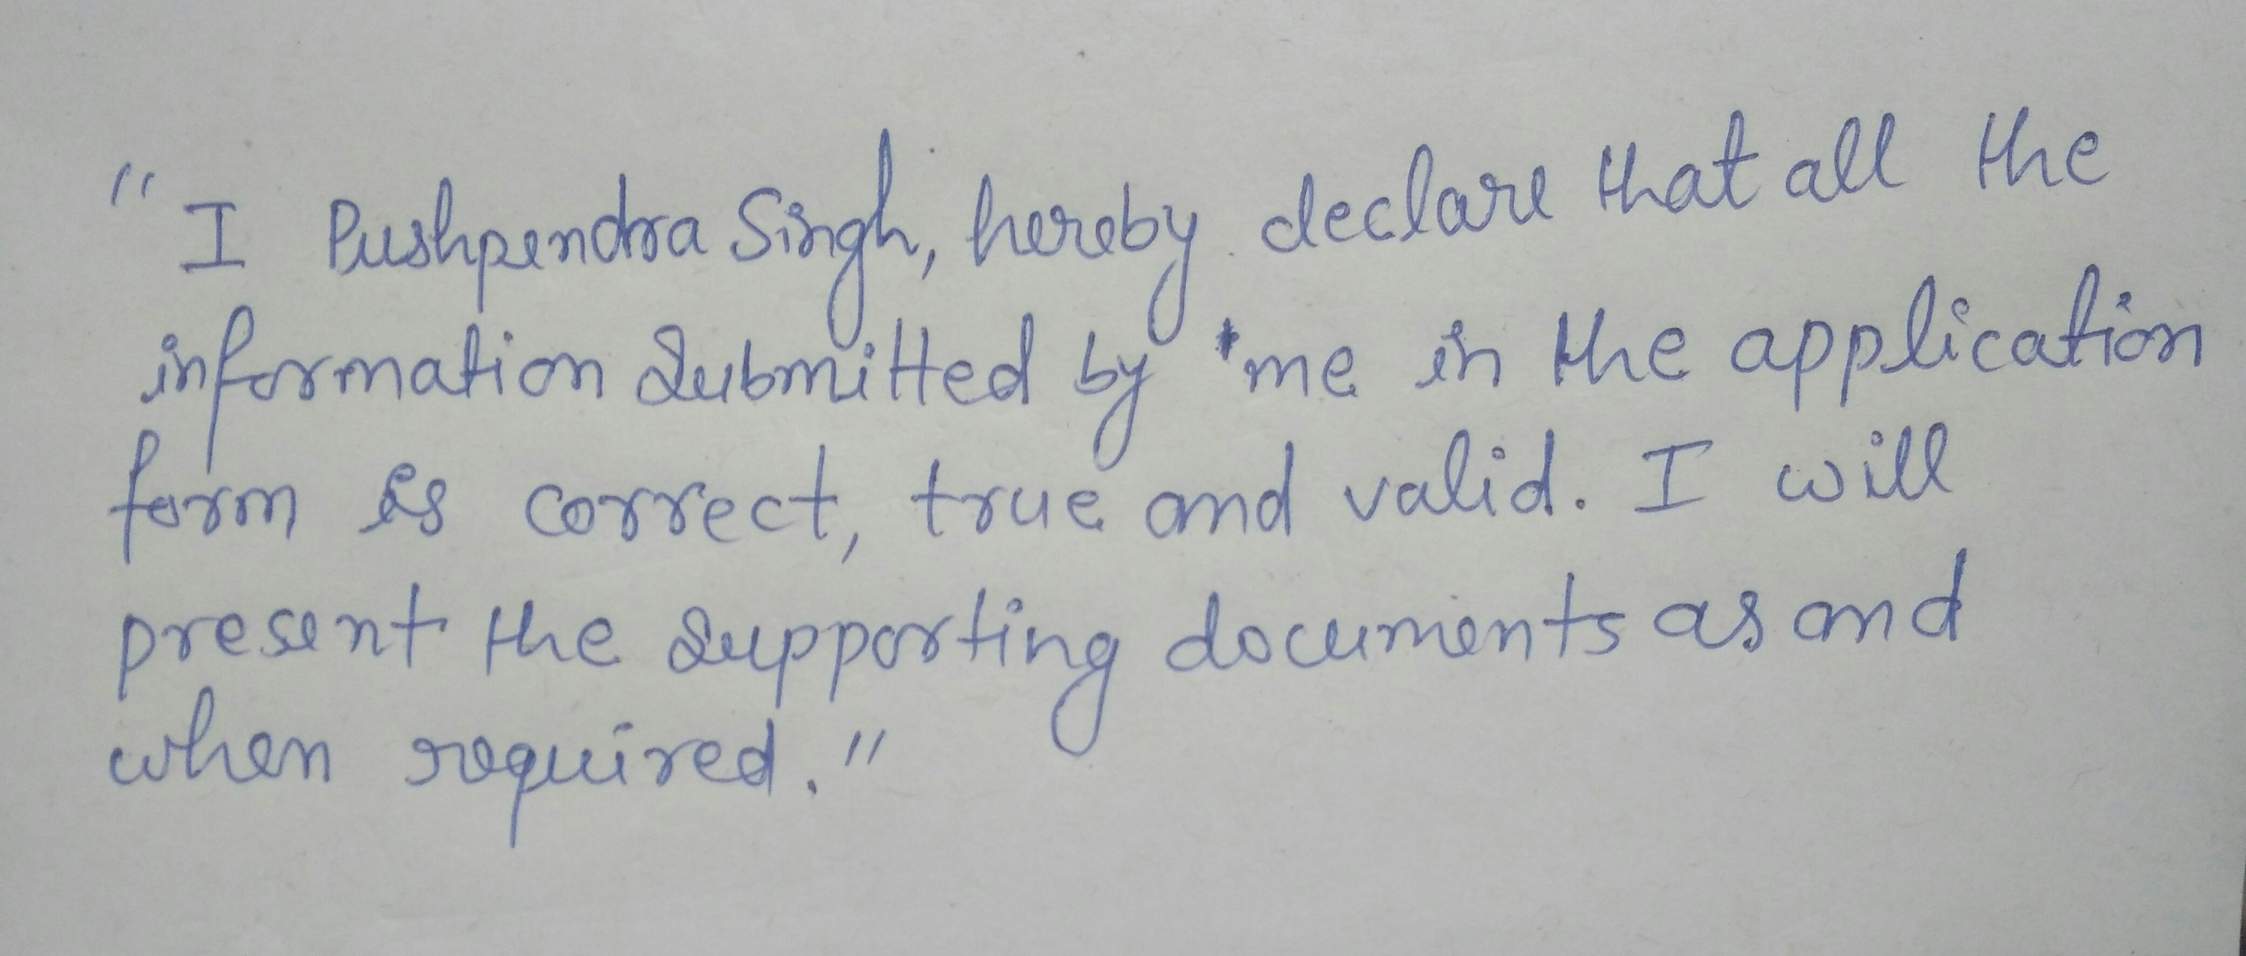 "I Pushpendra Singh, hereby declare that all the
information submitted by me in the application
form is correct, true and valid. I will
present the supporting documents as and
when required."